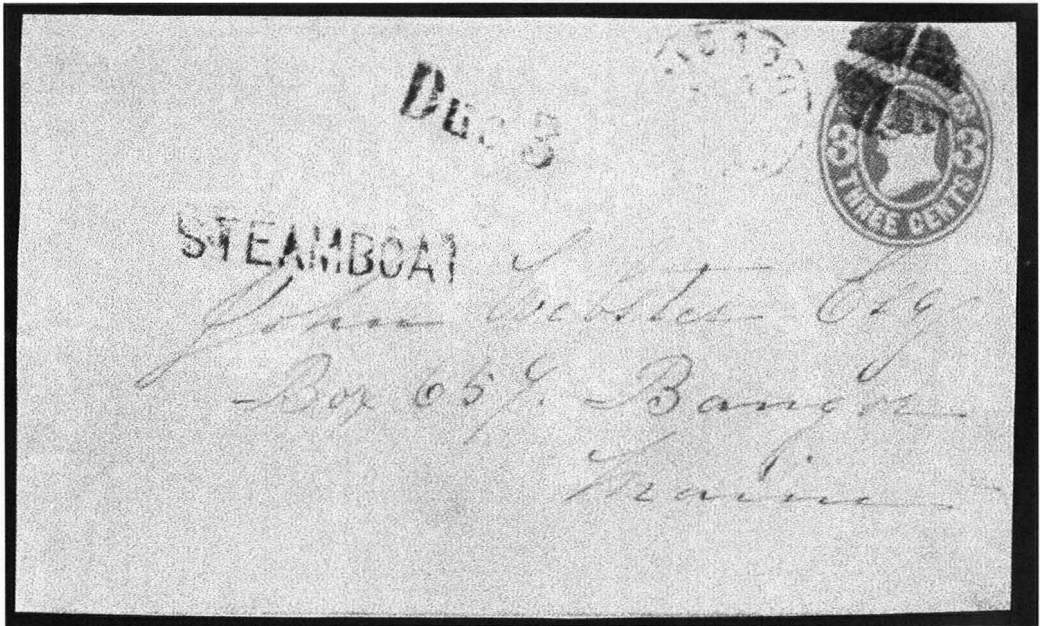 Due 3
3 3
THREE CENTS
STEAMBOAT
John Webster Esq
Box 657. Bangor
Maine